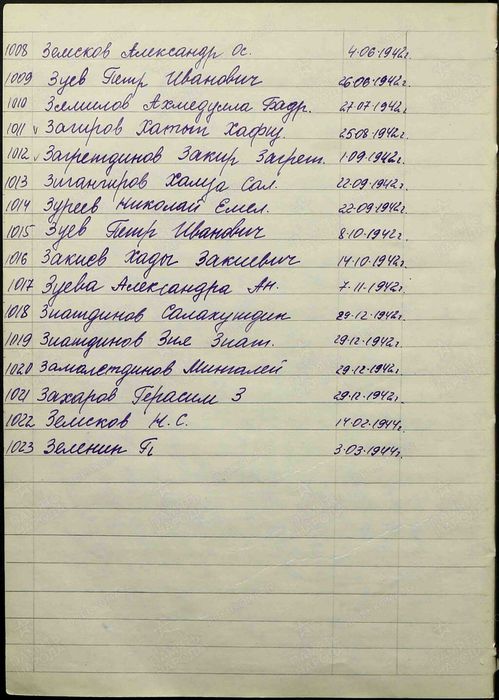 1008 Земсков Александр Ос. 4·06·1942г.
1009 Зуев Петр Иванович 26·06·1942г.
1010 Зелилов Ахмедулла Бадр. 27·07·1942г.
1011 v Загиров Хатып Хафиз. 25·08·1942г.
1012 v Загретдинов Закир Загрет. 1·09·1942г.
1013 Зигангиров Халуза Сал. 22·09·1942г.
1014 Зуреев Николай Емел. 22·09·1942г.
1015 Зуев Петр Иванович 8·10·1942г.
1016 Закиев Хады Закиевич 14·10·1942г.
1017 Зуева Александра Ан. 7·11·1942г.
1018 Зиатдинов Салахутдин 29·12·1942г.
1019 Зиатдинов Зия Зиат. 29·12·1942г.
1020 Замалетдинов Мингалей 29·12·1942г.
1021 Захаров Герасим З 29·12·1942г.
1022 Земсков Н.С. 14·02·1944г.
1023 Зеленин П. 3·03·1944г.